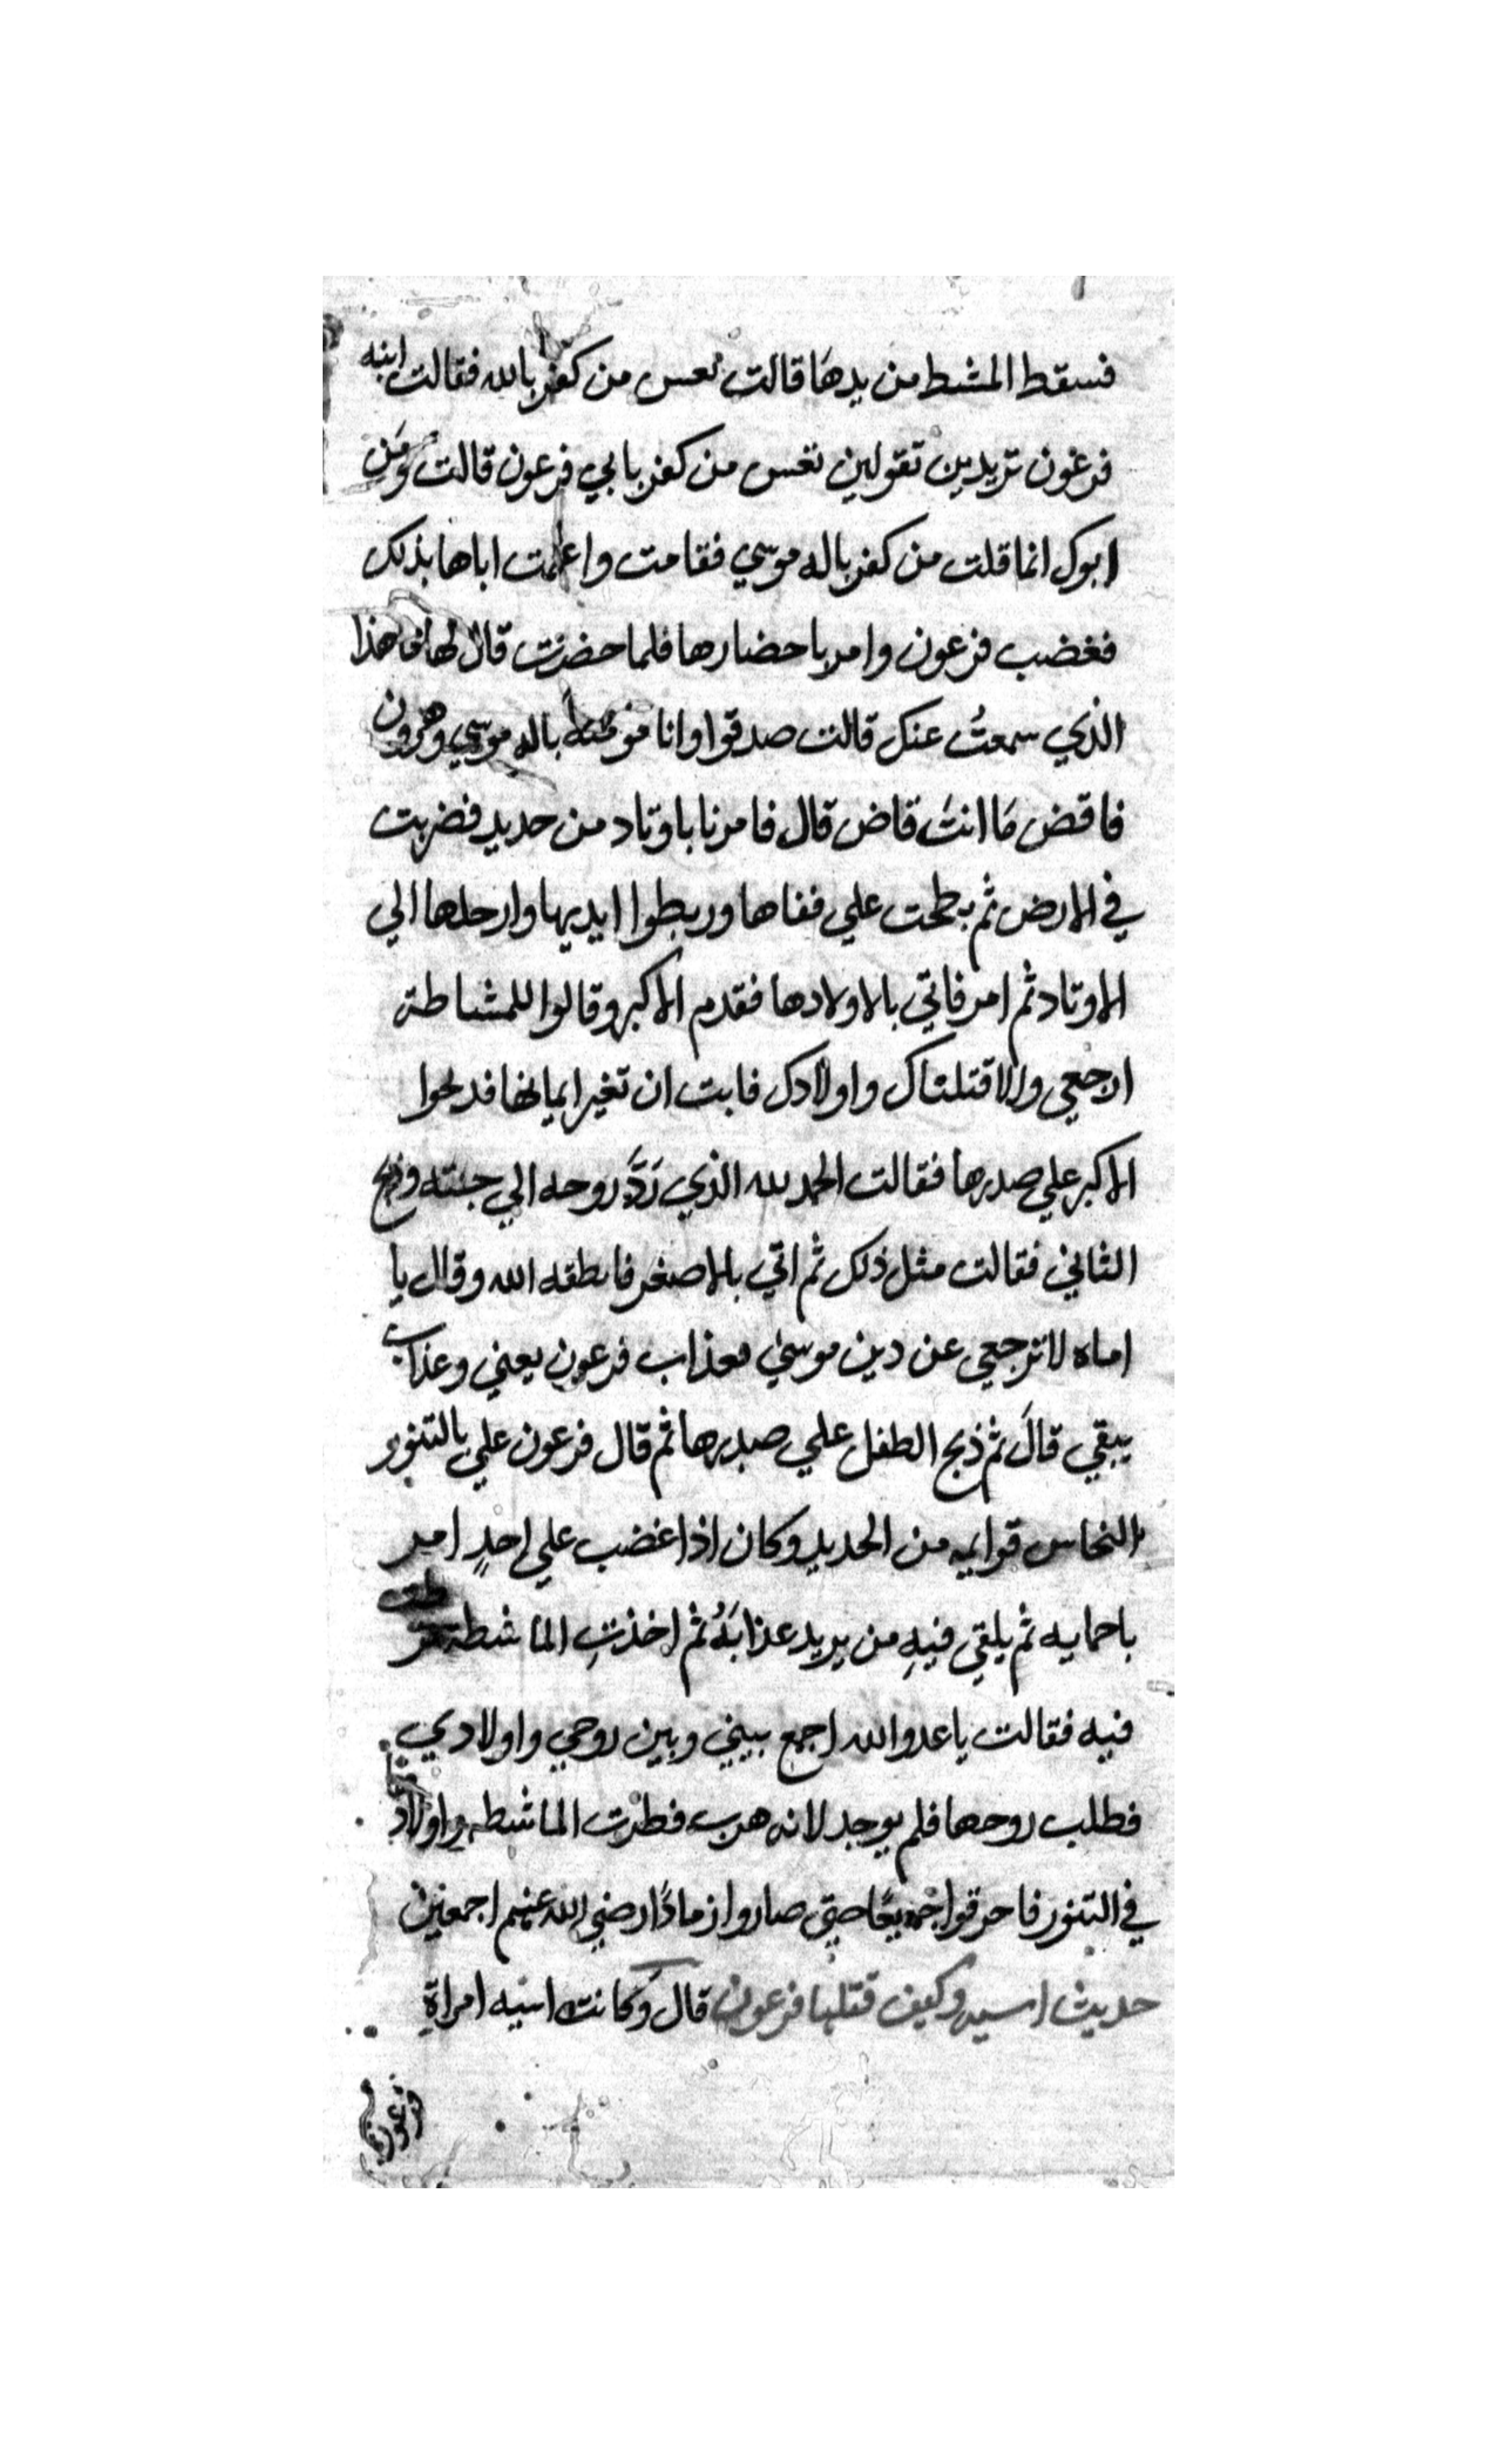 فسقط المشط من يدهَا قالت تعس من كفر بالله فقالت ابنه
فرعون تريدين تقولين تعس من كفر بابي فرعون قالت وَمَن
ابوك انما قلت من كفر باله موسي فقامت واعلمت اباها بذلك
فغضب فرعون وامر باحضارها فلما حضرت قال لها ما هذا
الذي سمعتُ عنك قالت صدقوا وانا مومنة باله موسي وهرون
فاقض مَا انتَ قاض قال فامرنا باوتاد من حديد فضربت
في الارض ثم بطحت علي قفاها وربطوا ايديها وارجلها الي
الاوتاد ثم امر فاتي بالاولادها فقدم الاكبر وقالوا للمشاطة
ارجعي والا قتلناك واولادك فابت ان تغير ايمانها فذبحوا
الاكبر علي صدرها فقالت الحمد لله الذي رَدَّ روحه الي جنته وذبح
الثاني فقالت مثل ذلك ثم اتي بالاصغر فانطقه الله وقال يا
اماه لا ترجعي عن دين موسيٰ فعذاب فرعون يعني وعذاب
يبقي قالَ ثم ذبح الطفل علي صدرها ثم قال فرعون علي بالتنور
النحاس قوايمه من الحديد وكان اذا غضب علي احدٍ امر
باحمايه ثم يلقي فيهِ من يريد عذابَهُ ثم اخذتِ الماشطة
فيه فقالت يا عدو الله اجمع بيني وبين زوجي واولادي
فطلب زوجها فلم يوجد لانه هرب فطرت الماشطه واولاد
في التنور فاحرقوا جميعًا حتي صاروا رمادًا رضي الله عنهم اجمعين
حديث اسيه وكيف قتلها فرعون قال وَكانت اسيه امراةِ
فرعون